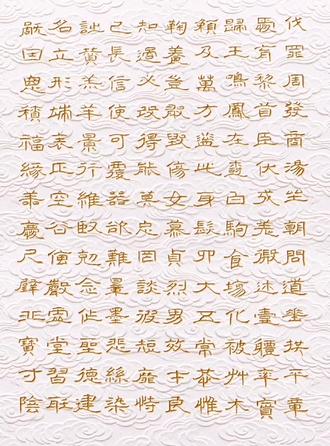 伐罪周發商湯坐朝問道垂拱平章
愛育黎首臣伏戎羌遐邇壹體率賓
歸王鳴鳳在樹白駒食場化被草木
賴及萬方蓋此身髮四大五常恭惟
鞠養豈敢毀傷女慕貞烈男效才良
知過必改得能莫忘罔談彼短靡恃
己長信使可覆器欲難量墨悲絲染
詩讚羔羊景行維賢剋念作聖德建
名立形端表正空谷傳聲虛堂習聽
禍因惡積福緣善慶尺璧非寶寸陰